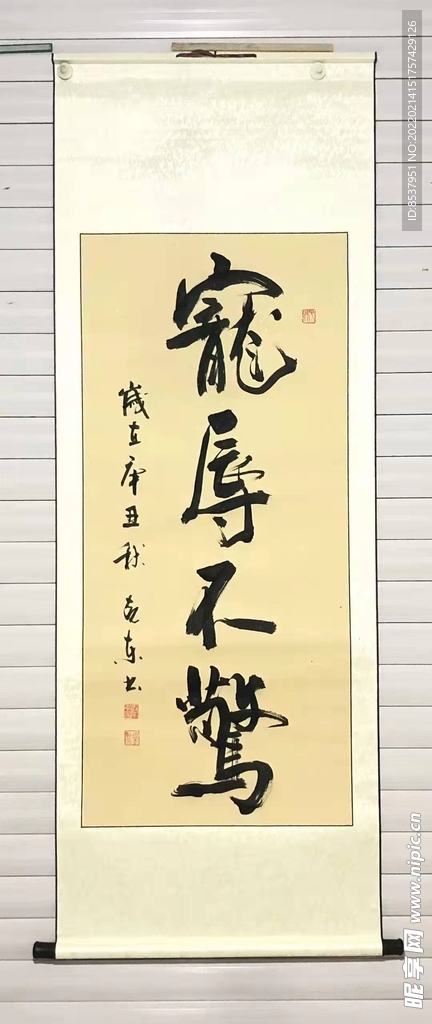 寵辱不驚
歲在辛丑秋 克东书
ID:8537951 NO:20220214151757429126
昵享网 www.nipic.cn